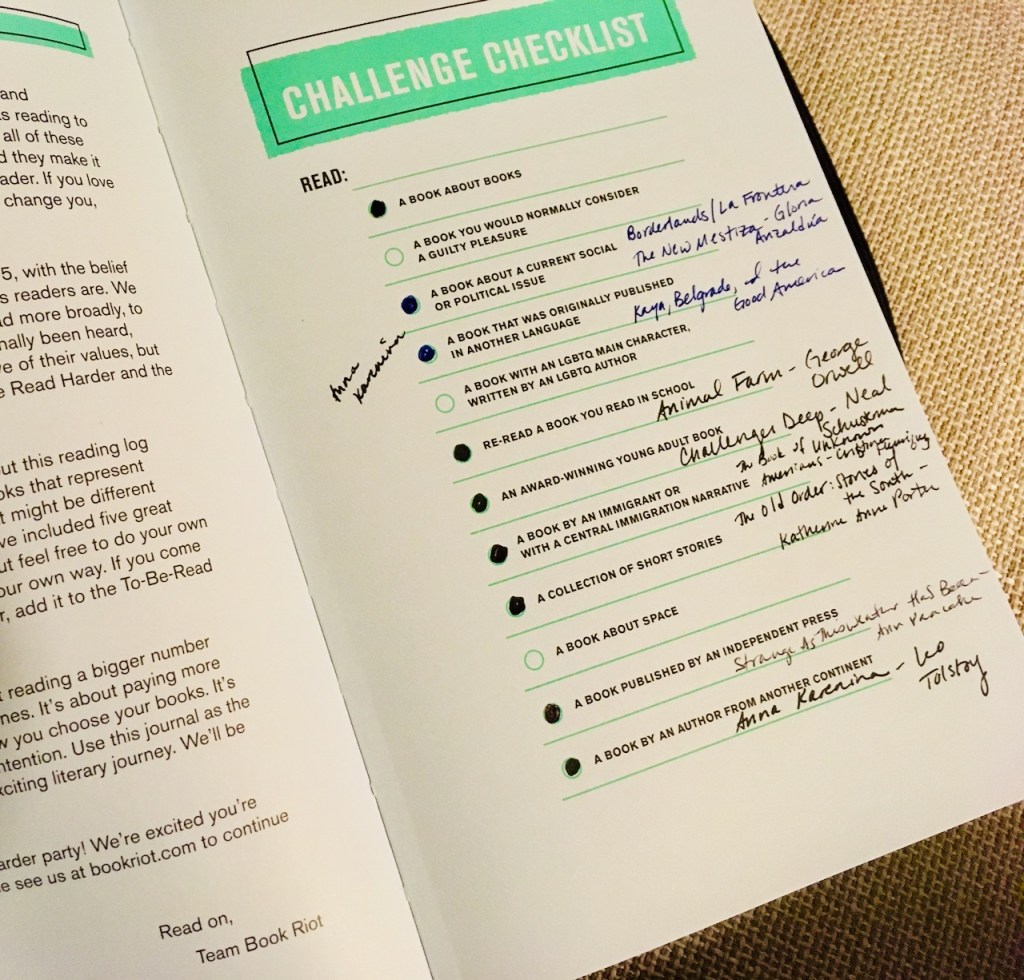 and
s reading to
all of these
d they make it
ader. If you love
change you,
5, with the belief
s readers are. We
ad more broadly, to
nally been heard,
ve of their values, but
e Read Harder and the
out this reading log
oks that represent
t might be different
ve included five great
ut feel free to do your own
our own way. If you come
r, add it to the To-Be-Read
t reading a bigger number
nes. It's about paying more
w you choose your books. It's
ntention. Use this journal as the
xciting literary journey. We'll be
arder party! We're excited you're
e see us at bookriot.com to continue
Read on,
Team Book Riot
CHALLENGE CHECKLIST
READ:
A BOOK ABOUT BOOKS
A BOOK YOU WOULD NORMALLY CONSIDER
A GUILTY PLEASURE
A BOOK ABOUT A CURRENT SOCIAL
OR POLITICAL ISSUE
Borderlands/La Frontera
The New Mestiza - Gloria
Anzaldúa
A BOOK THAT WAS ORIGINALLY PUBLISHED
IN ANOTHER LANGUAGE
Anna
Karenina
Kaya, Belgrade, and the
Good American
A BOOK WITH AN LGBTQ MAIN CHARACTER,
WRITTEN BY AN LGBTQ AUTHOR
RE-READ A BOOK YOU READ IN SCHOOL
Animal Farm - George
Orwell
AN AWARD-WINNING YOUNG ADULT BOOK
Challenger Deep - Neal
Schusterman
A BOOK BY AN IMMIGRANT OR
WITH A CENTRAL IMMIGRATION NARRATIVE
The Book of Unknown
Americans - Cristina
A COLLECTION OF SHORT STORIES
The Old Order: Stories of
the South -
Katherine Anne Porter
A BOOK ABOUT SPACE
A BOOK PUBLISHED BY AN INDEPENDENT PRESS
Strange As This Weather Has Been -
Ann Pancake
A BOOK BY AN AUTHOR FROM ANOTHER CONTINENT
Anna Karenina - Leo
Tolstoy